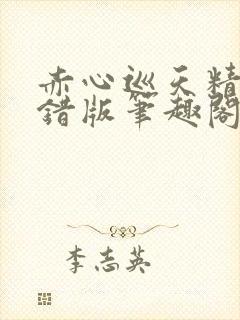 赤心巡天精
错版筆趣閣
李志英